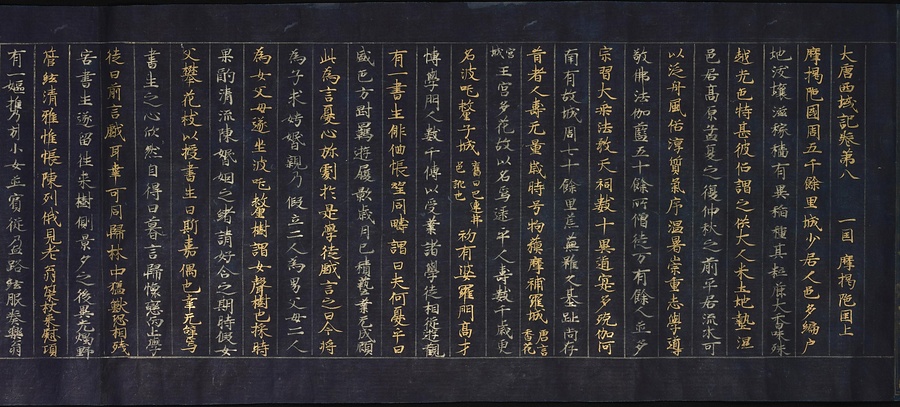 大唐西域記卷第八 一國 摩揭陁國上
摩揭陁國周五千餘里城少居人邑多編户
地沃壤滋稼穡有異稻種其粒麁大香味殊
越光色特甚彼俗謂之供大人米土地墊濕
邑居高原孟夏之後仲秋之前平居流水可
以泛舟風俗淳質氣序溫暑崇重志學尊
敬佛法伽藍五十餘所僧徒万有餘人並多
宗習大乘法教天祠數十異道寔多殑伽河
南有故城周七十餘里荒蕪雖久基趾尚存
昔者人壽无量歲時号拘摩補羅城 唐言香花
宮城 王宮多花故以名焉逮乎人壽數千歲更
名波吒釐子城 舊曰巴連弗邑訛也 初有婆羅門高才
博學門人數千傳以受業諸學徒相從遊觀
有一書生俳佪悵望同疇謂曰夫何憂乎曰
盛色方剛羇遊履影歲月已積藝業无成顧
此為言憂心弥劇於是學徒戲言之曰今將
為子求娉婚親乃假立二人為男父母二人
為女父母遂坐波吒釐樹謂女聟樹也採時
果酌清流陳婚姻之緒請好合之期時假女
父攀花枝以授書生曰斯嘉偶也幸无辭焉
書生之心欣然自得日暮言歸懷戀而止學
徒曰前言戲耳幸可同歸林中猛獸恐相殘
害書生遂留往來樹側景夕之後異光燭野
管絃清雅帷帳陳列俄見老翁策杖來慰復
有一嫗攜引少女並賓從盈路袨服奏樂翁